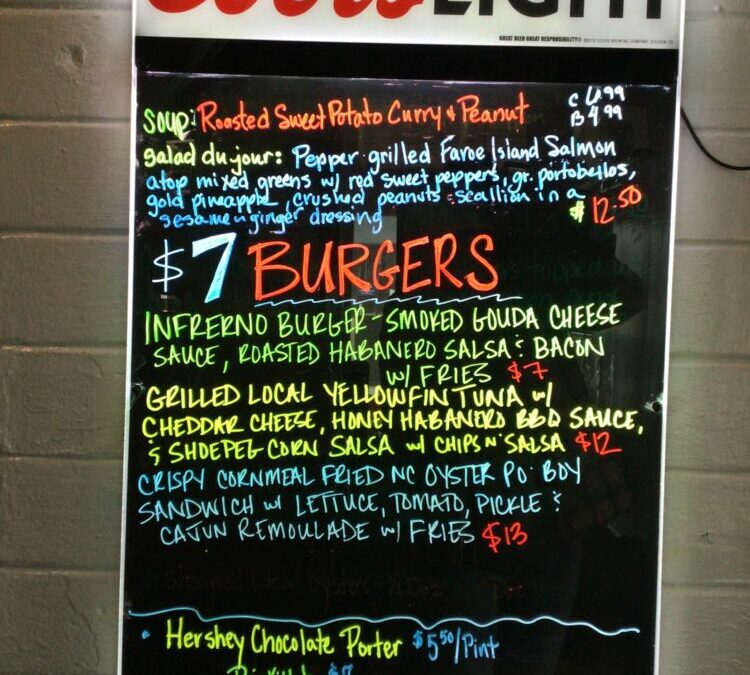 Coors LIGHT
GREAT BEER GREAT RESPONSIBILITY®
Soup: Roasted Sweet Potato Curry & Peanut C 6.99
B 4.99
Salad du jour: Pepper grilled Faroe Island Salmon
atop mixed greens w/ red sweet peppers, gr. portobellos,
gold pineapple, crushed peanuts & scallion in a
sesame ginger dressing $12.50
$7 BURGERS
INFRERNO BURGER - SMOKED GOUDA CHEESE
SAUCE, ROASTED HABANERO SALSA & BACON
W/ FRIES $7
GRILLED LOCAL YELLOWFIN TUNA W/
CHEDDAR CHEESE, HONEY HABANERO BBQ SAUCE,
& SHOEPEG CORN SALSA w/ CHIPS N' SALSA $12
CRISPY CORNMEAL FRIED NC OYSTER PO' BOY
SANDWICH w/ LETTUCE, TOMATO, PICKLE &
CAJUN REMOULADE w/ FRIES $13
• Hershey Chocolate Porter $5.50/Pint